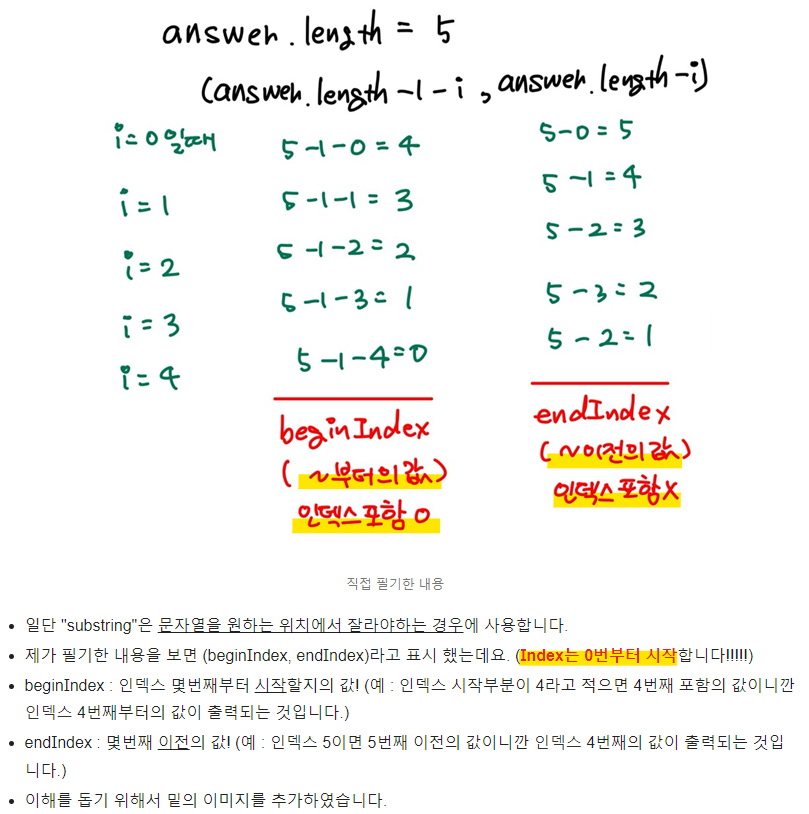 answer.length = 5
(answer.length-1-i, answer.length-i)
i=0일때 5-1-0=4 5-0=5
i=1 5-1-1=3 5-1=4
i=2 5-1-2=2 5-2=3
i=3 5-1-3=1 5-3=2
i=4 5-1-4=0 5-2=1
beginIndex endIndex
(~부터의 값) (~이전의 값)
인덱스 포함 O 인덱스 포함 X
직접 필기한 내용
• 일단 "substring"은 문자열을 원하는 위치에서 잘라야하는 경우에 사용합니다.
• 제가 필기한 내용을 보면 (beginIndex, endIndex)라고 표시 했는데요. (Index는 0번부터 시작합니다!!!!!)
• beginIndex : 인덱스 몇번째부터 시작할지의 값! (예 : 인덱스 시작부분이 4라고 적으면 4번째 포함의 값이니깐
인덱스 4번째부터의 값이 출력되는 것입니다.)
• endIndex : 몇번째 이전의 값! (예 : 인덱스 5이면 5번째 이전의 값이니깐 인덱스 4번째의 값이 출력되는 것입
니다.)
• 이해를 돕기 위해서 밑의 이미지를 추가하였습니다.